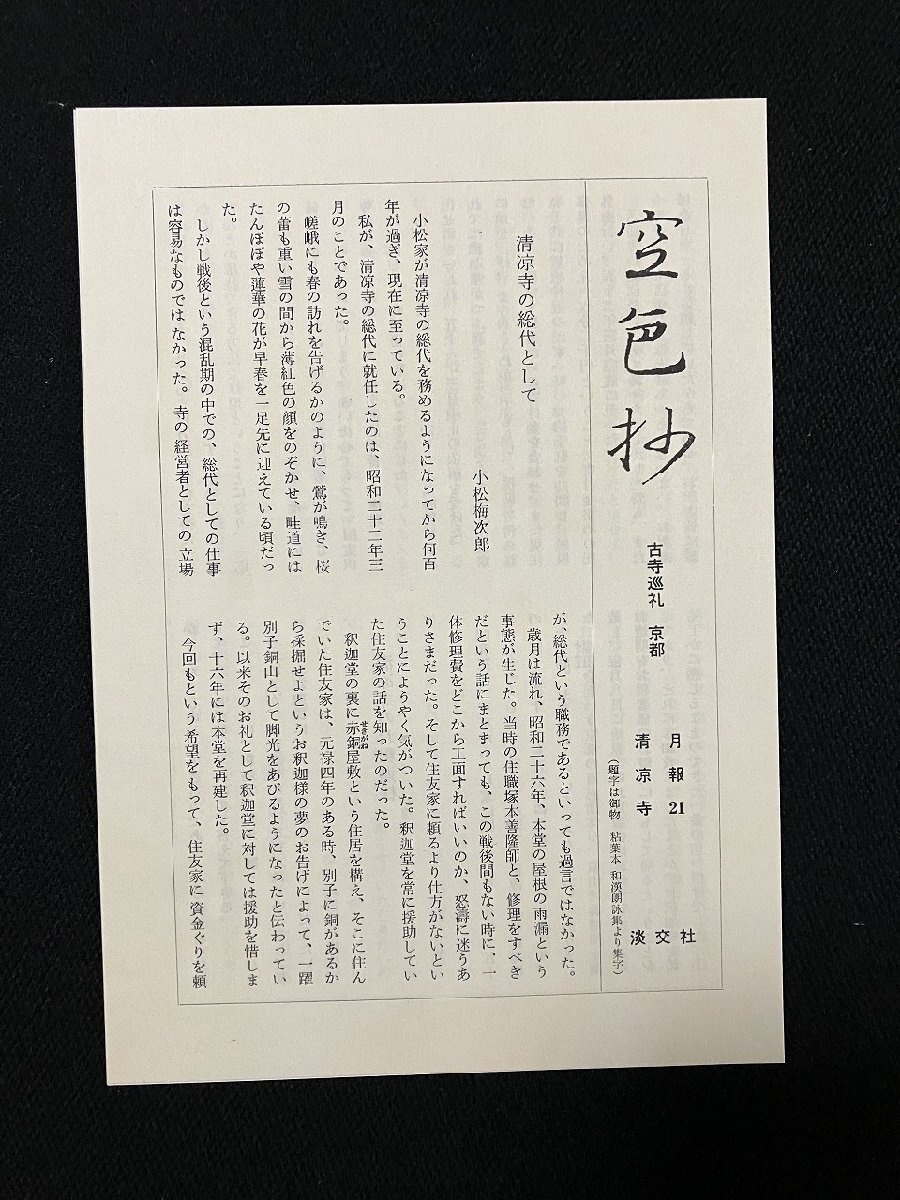 空色抄
古寺巡礼 京都
月報21
清凉寺
淡交社
(題字は御物 粘葉本 和漢朗詠集より集字)
清凉寺の総代として
小松梅次郎
小松家が清凉寺の総代を務めるようになってから何百
年が過ぎ、現在に至っている。
私が、清凉寺の総代に就任したのは、昭和二十二年三
月のことであった。
嵯峨にも春の訪れを告げるかのように、鶯が鳴き、桜
の蕾も重い雪の間から薄紅色の顔をのぞかせ、畦道には
たんぽぽや蓮華の花が早春を一足先に迎えている頃だっ
た。
しかし戦後という混乱期の中での、総代としての仕事
は容易なものではなかった。寺の経営者としての立場
が、総代という職務であるといっても過言ではなかった。
歳月は流れ、昭和二十六年、本堂の屋根の雨漏という
事態が生じた。当時の住職塚本善隆師と、修理をすべき
だという話にまとまっても、この戦後間もない時に、一
体修理費をどこから工面すればいいのか、怒濤に迷うあ
りさまだった。そして住友家に頼るより仕方がないとい
うことにようやく気がついた。釈迦堂を常に援助してい
た住友家の話を知ったのだった。
釈迦堂の裏に赤銅屋敷という住居を構え、そこに住ん
でいた住友家は、元禄四年のある時、別子に銅があるか
ら採掘せよというお釈迦様の夢のお告げによって、一躍
別子銅山として脚光をあびるようになったと伝わってい
る。以来そのお礼として釈迦堂に対しては援助を惜しま
ず、十六年には本堂を再建した。
今回もという希望をもって、住友家に資金ぐりを頼